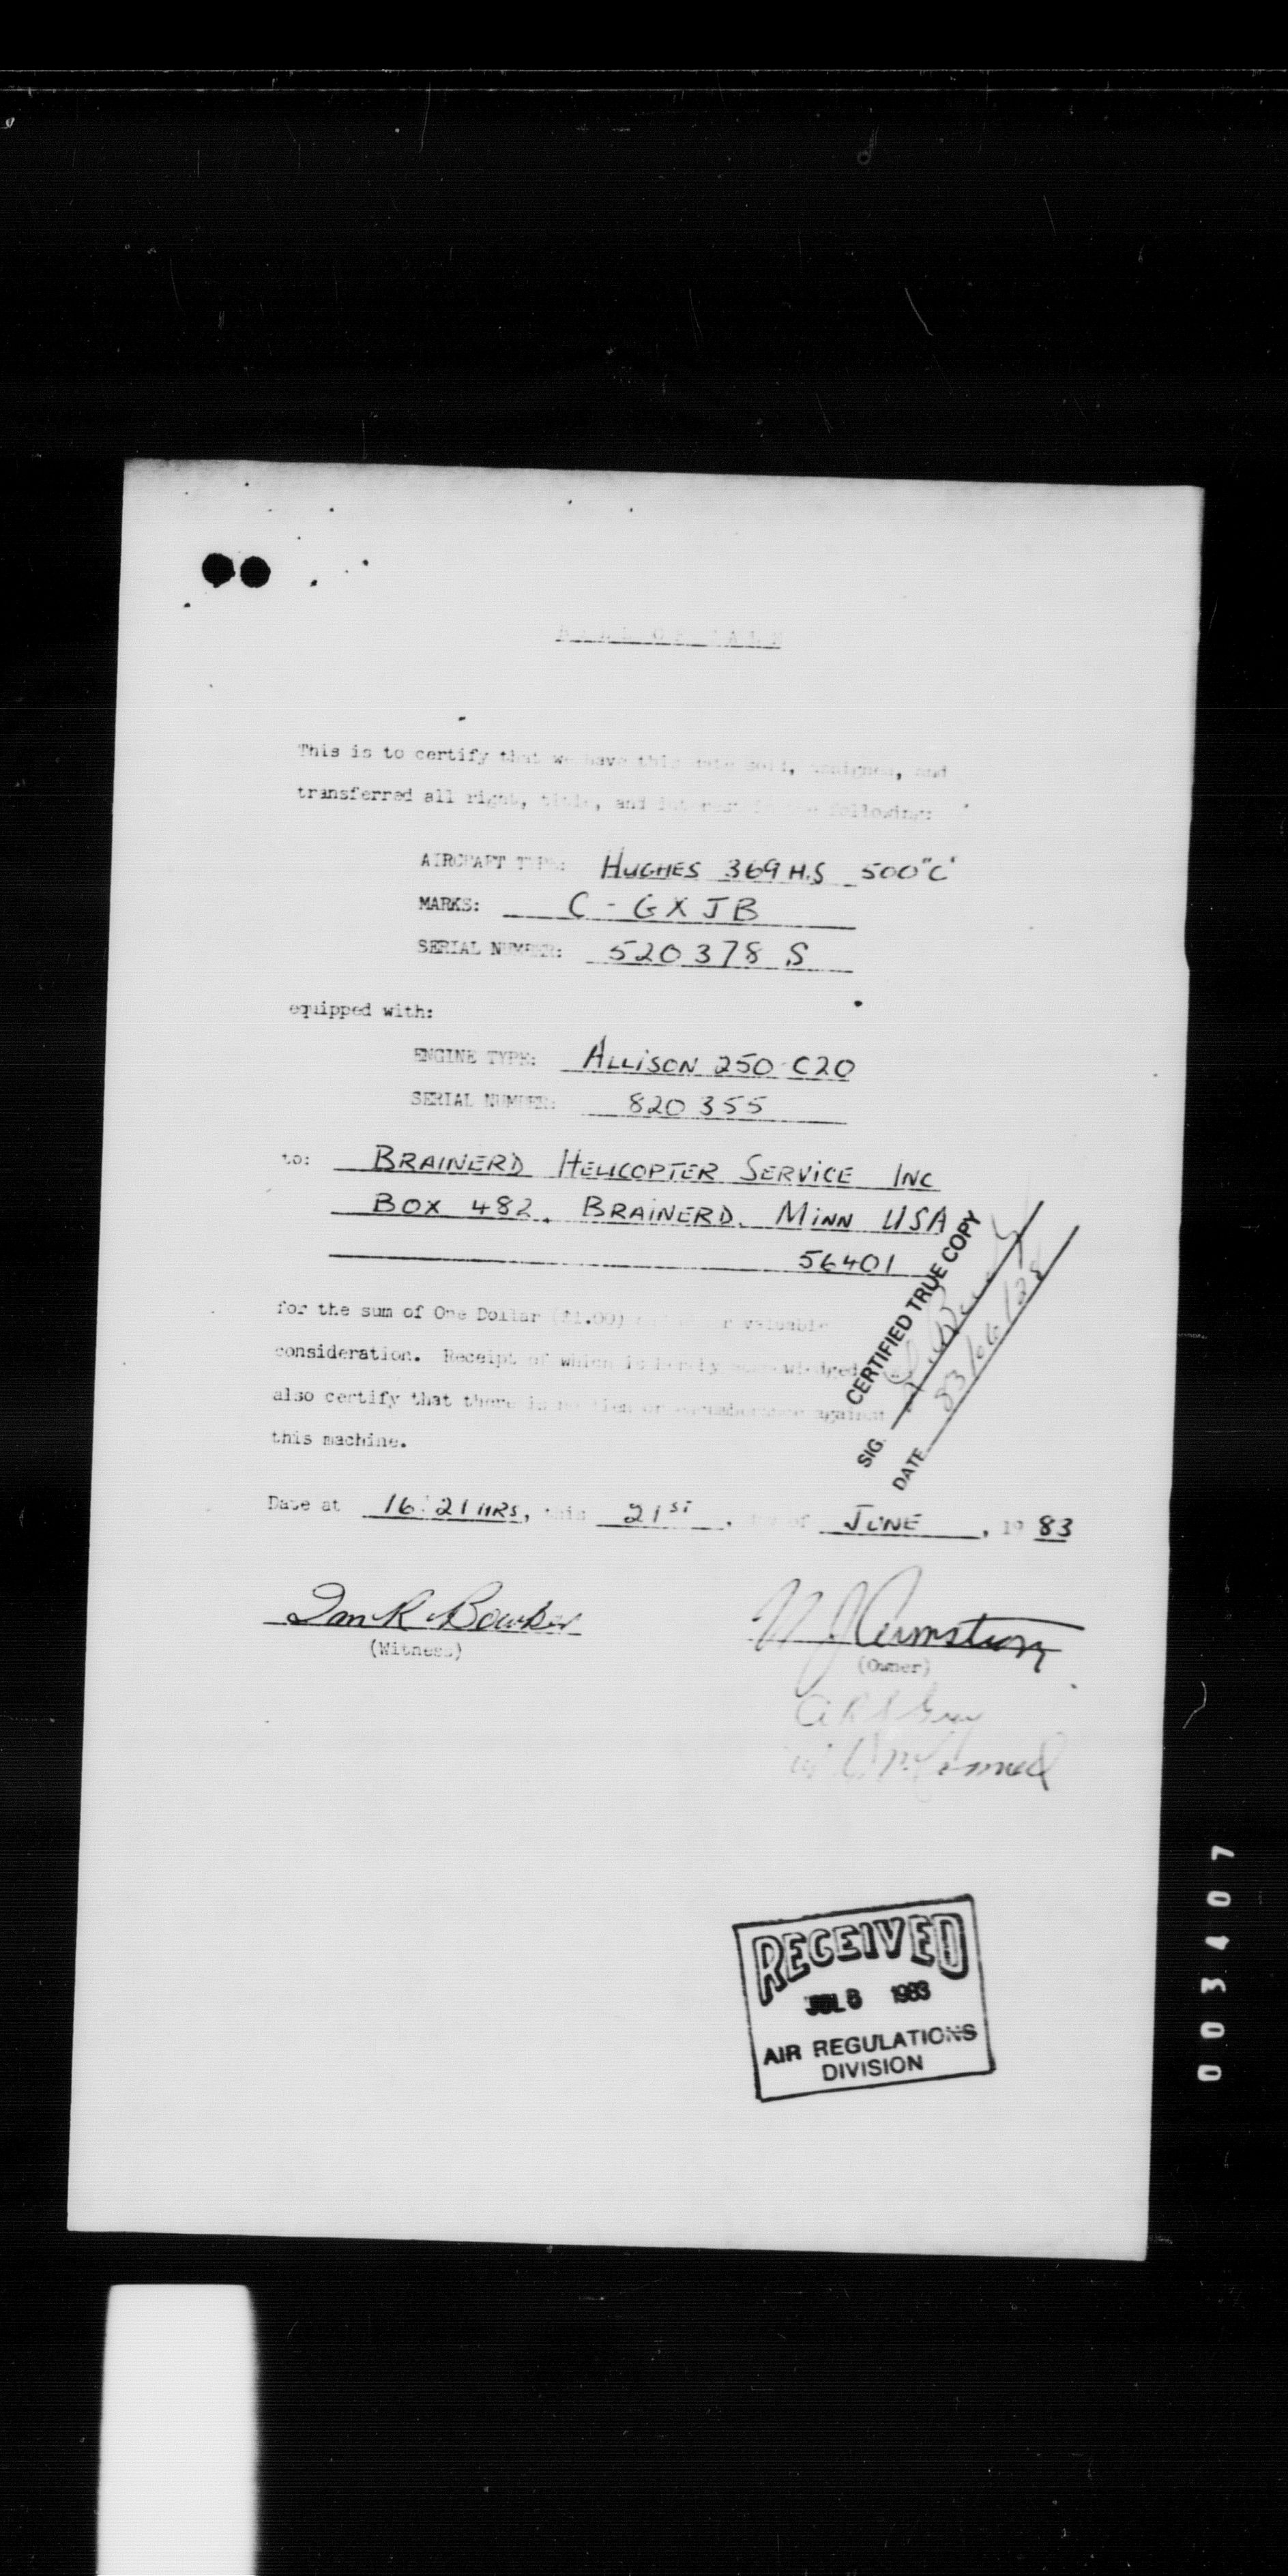 BILL OF SALE
This is to certify that we have this date sold, assigned, and
transferred all right, title, and interest in the following:
AIRCRAFT TYPE: HUGHES 369 H.S 500 "C"
MARKS: C - GXJB
SERIAL NUMBER: 520378 S
equipped with:
ENGINE TYPE: ALLISON 250-C20
SERIAL NUMBER: 820355
to: BRAINERD HELICOPTER SERVICE INC
BOX 482, BRAINERD. MINN USA
56401
for the sum of One Dollar ($1.00) and other valuable
consideration. Receipt of which is hereby acknowledged
also certify that there is no lien or encumberance against
this machine.
CERTIFIED TRUE COPY
SIG.
DATE 83/06/28
Date at 16:21 HRS, this 21ST, day of JUNE, 19 83
Ian R Bowker
(Witness)
N J Armstrong
(Owner)
RECEIVED
JUL 8 1983
AIR REGULATIONS
DIVISION
003407